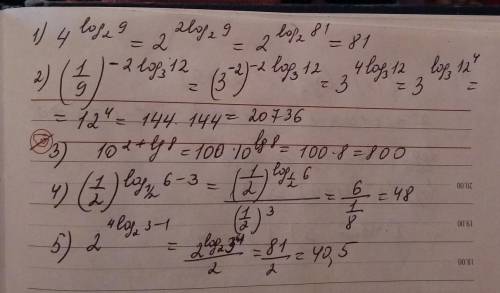 1) 4^{log_2 9} = 2^{2log_2 9} = 2^{log_2 81} = 81
2) (1/9)^{-2 log_3 12} = (3^{-2})^{-2 log_3 12} = 3^{4log_3 12} = 3^{log_3 12^4} =
= 12^4 = 144 . 144 = 20736
3) 10^{2+lg8} = 100·10^{lg8} = 100·8 = 800
4) (1/2)^{log_{1/2} 6-3} = (1/2)^{log_{1/2} 6} / (1/2)^3 = 6 / (1/8) = 48
5) 2^{4log_2 3-1} = 2^{log_2 3^4} / 2 = 81/2 = 40,5
20.00
19.00
18.00